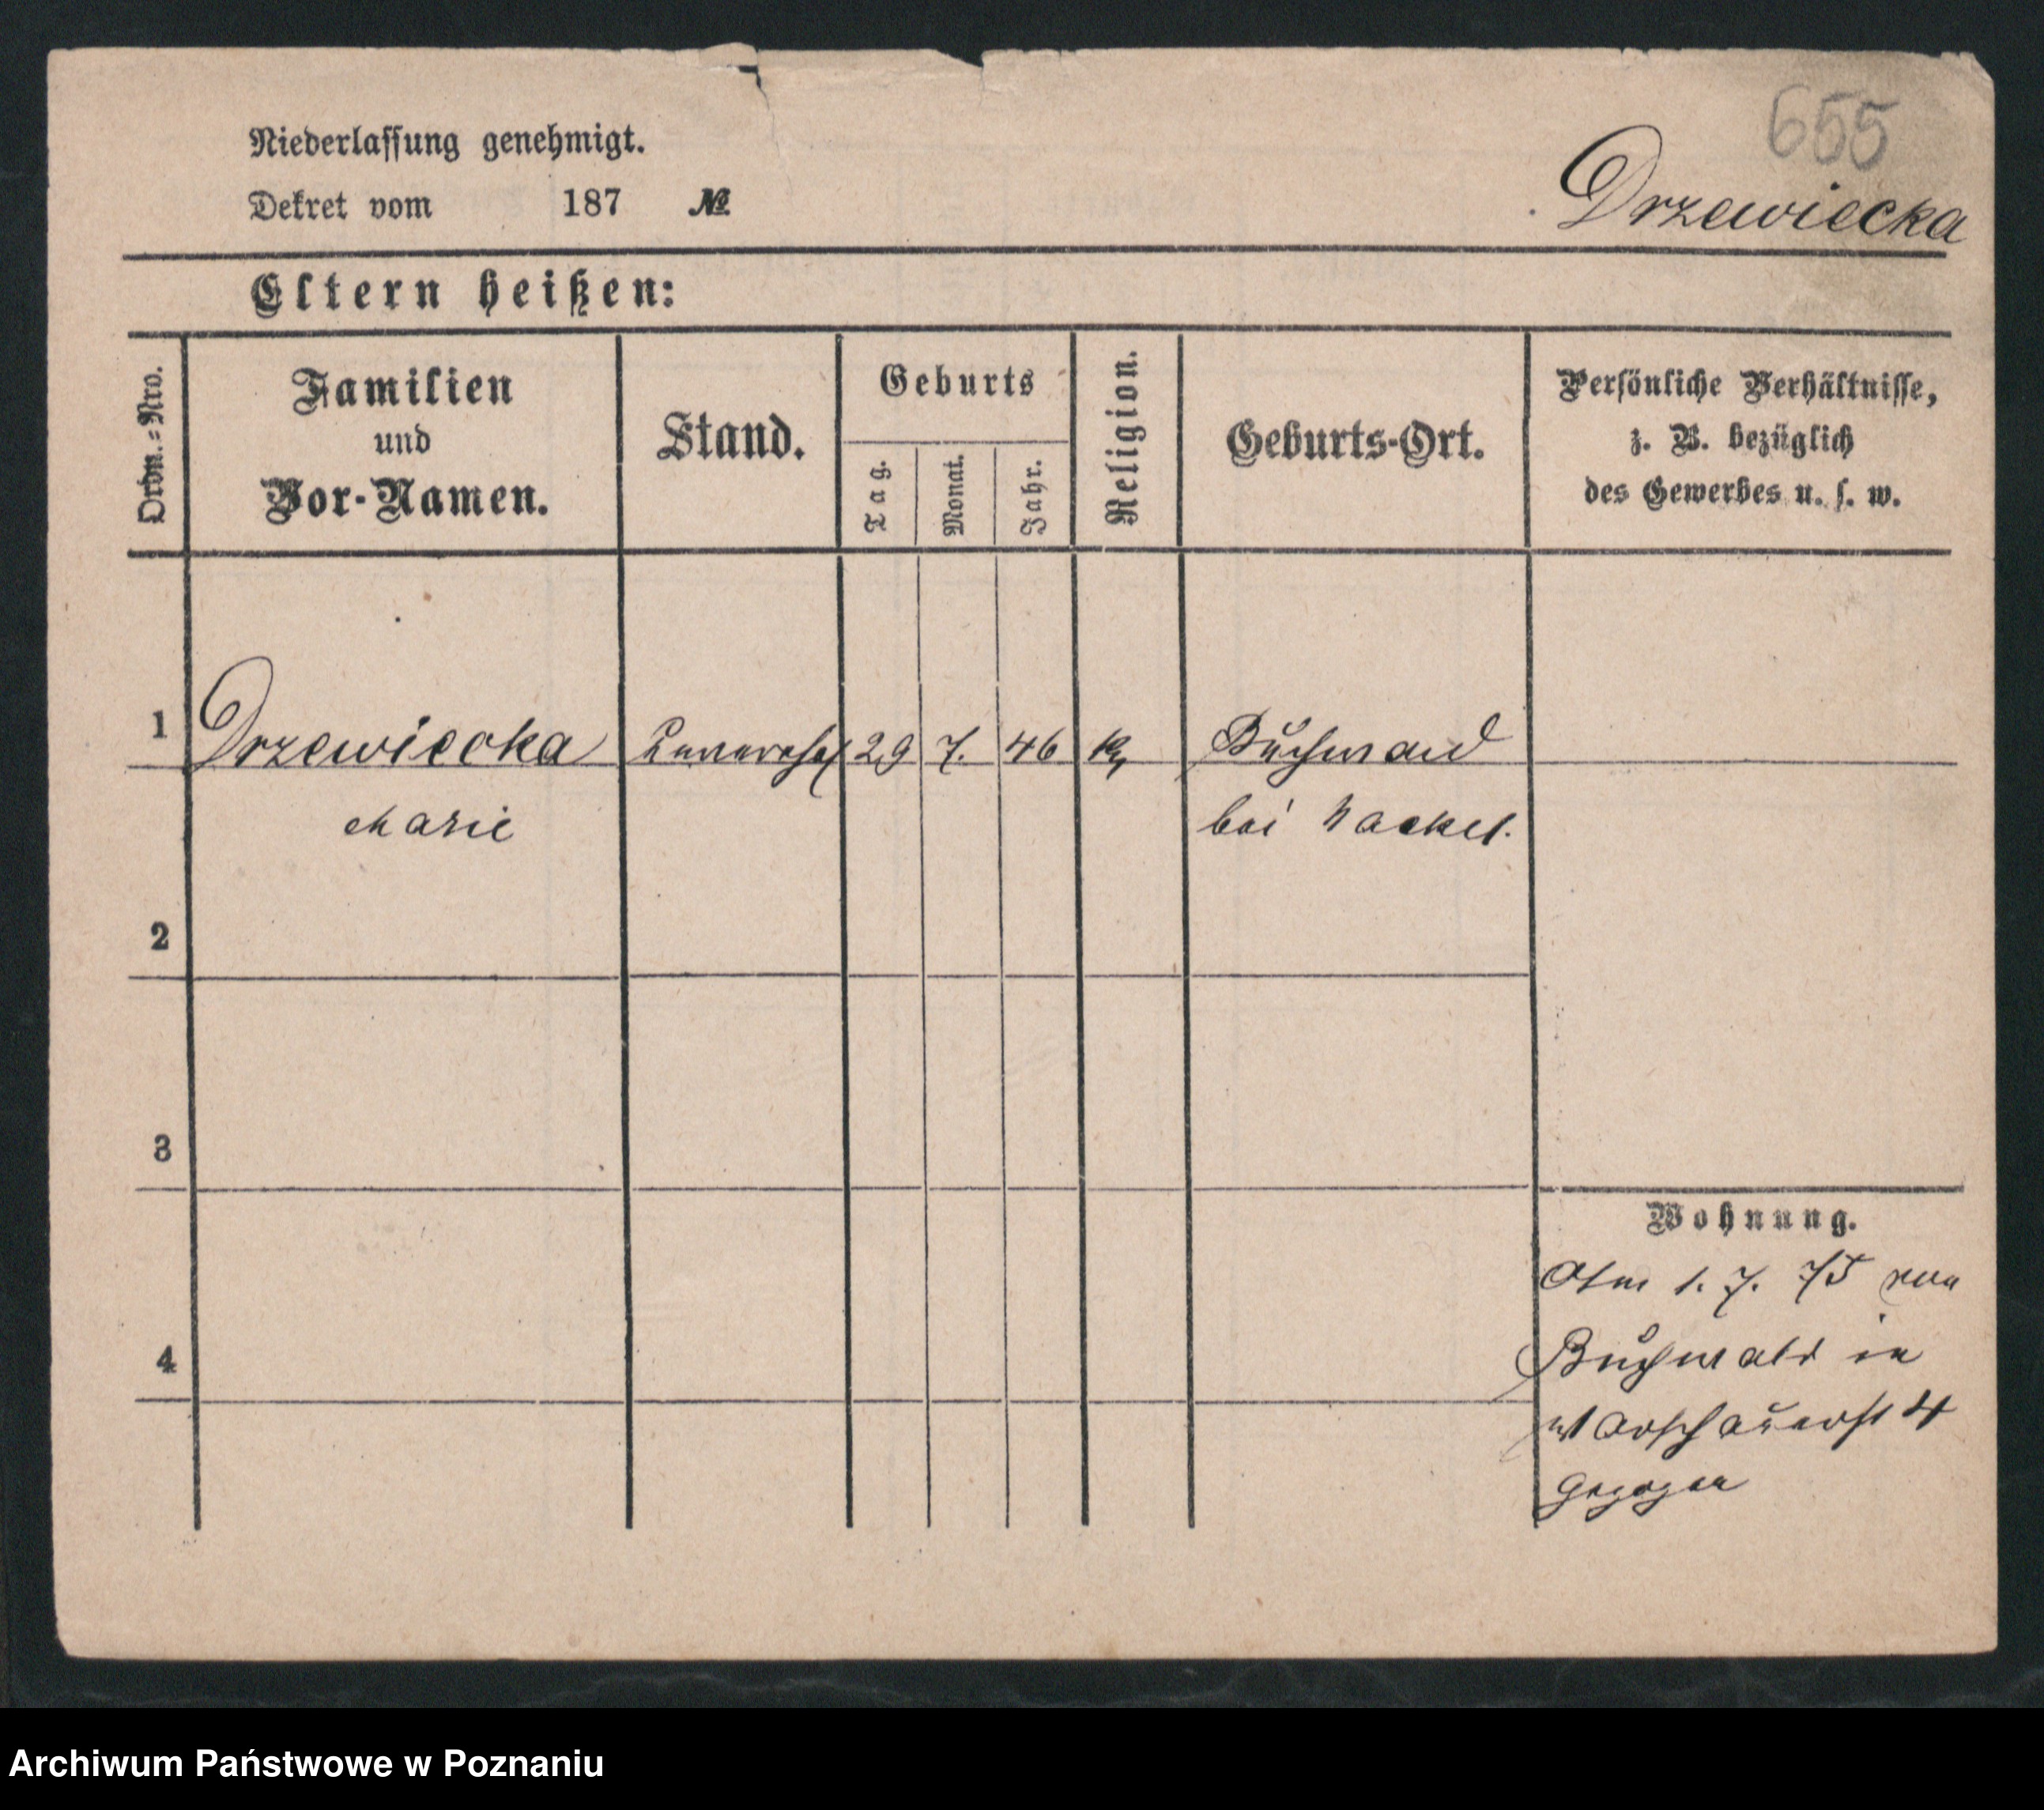 655
Niederlassung genehmigt.
Dekret vom 187 №
Drzewiecka
Eltern heißen:
Ordn.=Nro.
Familien
und
Vor-Namen.
Stand.
Geburts
Tag.
Monat.
Jahr.
Religion.
Geburts-Ort.
Persönliche Verhältnisse,
z. B. bezüglich
des Gewerbes u. s. w.
1 Drzewiecka 29 7. 46 Buchwald
Marie bei Nackel.
2
3
4
Wohnung.
Am 1. 7. 75 von
Buchwald in
Warschauerst 4
gezogen
Archiwum Państwowe w Poznaniu